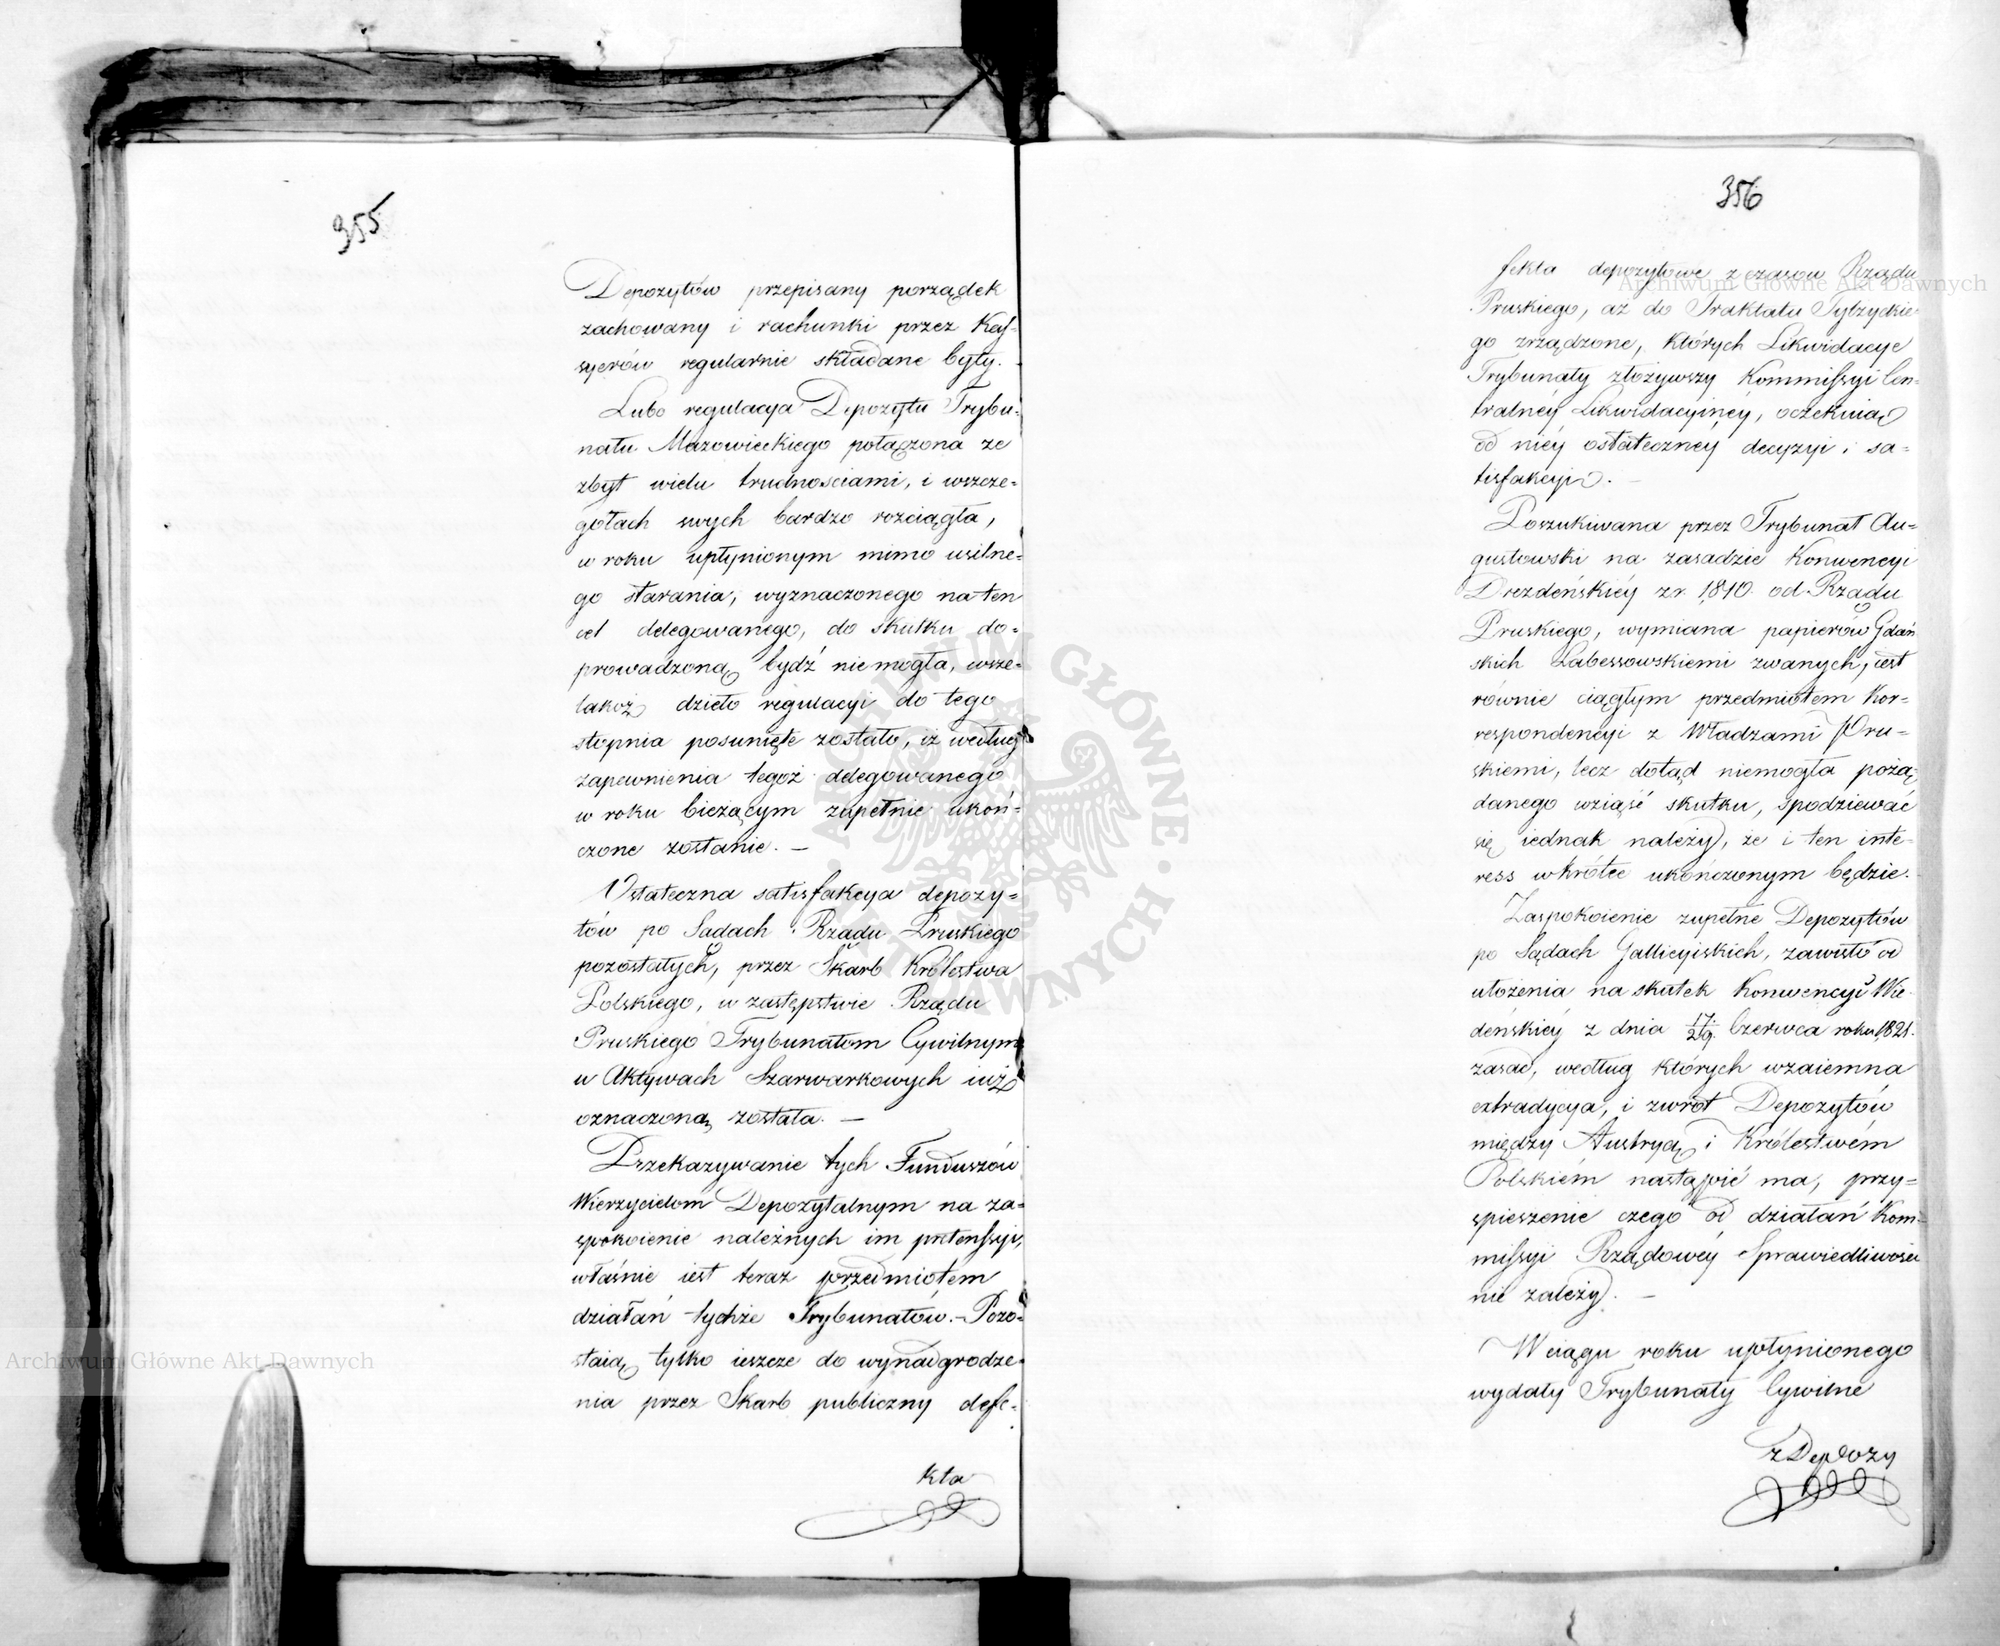 355
Depozytów przepisany porządek
zachowany i rachunki przez Kas-
syerów regularnie składane były.
Lubo regulacya Depozytu Trybu-
nału Mazowieckiego połączona ze
zbyt wielu trudnościami, i wszcze-
gołach swych bardzo rozciągła,
w roku upłynionym mimo usilne-
go starania, wyznaczonego na ten
cel delegowanego, do skutku do-
prowadzoną bydź niemogła, wsze-
lakoż dzieło regulacyi do tego
stopnia posunięte zostało, iż według
zapewnienia tegoż delegowanego
w roku bieżącym zupełnie ukoń-
czone zostanie. —
Ostateczna satisfakcya depozy-
tów po Sądach Rządu Pruskiego
pozostałych, przez Skarb Królestwa
Polskiego, w zastępstwie Rządu
Pruskiego Trybunałom Cywilnym
w Aktywach Szarwarkowych iuż
oznaczoną została. —
Przekazywanie tych Funduszów
Wierzycielom Depozytalnym na za-
spokoienie należnych im pretensyi,
właśnie iest teraz przedmiotem
działań tychże Trybunałów. – Pozo-
staią tylko ieszcze do wynadgrodze-
nia przez Skarb publiczny defe-
kta
356
fekta depozytowe z czasów Rządu
Pruskiego, aż do Traktatu Tylżyckie-
go zrządzone, których Likwidacye
Trybunały złożywszy Kommissyi Cen-
tralnéy Likwidacyinéy, oczekuią
od niéy ostateczney decyzyi i sa-
tisfakcyi. —
Poszukiwana przez Trybunał Au-
gustowski na zasadzie Konwencyi
Drezdeńskiéy z r. 1810. od Rządu
Pruskiego, wymiana papierów Gdań-
skich Labessowskiemi zwanych, iest
równie ciągłym przedmiotem Kor-
respondencyi z Władzami Pru-
skiemi, lecz dotąd niemogła pożą-
danego wziąść skutku, spodziewać
się iednak należy, że i ten inte-
ress wkrótce ukończonym będzie.
Zaspokoienie zupełne Depozytów
po Sądach Gallicyiskich, zawisło od
ułożenia na skutek Konwencyi Wie-
deńskiéy z dnia 17/29. Czerwca roku 1821.
zasad, według których wzaiemna
extradycya, i zwrót Depozytów
między Austryą i Królestwém
Polskiém nastąpić ma, przy-
spieszenie czego od działań Kom-
missyi Rządowéy Sprawiedliwości
nie zależy. —
W ciągu roku upłynionego
wydały Trybunały Cywilne
z Depozy
Archiwum Główne Akt Dawnych
Archiwum Główne Akt Dawnych
ARCHIWUM GŁÓWNE AKT DAWNYCH